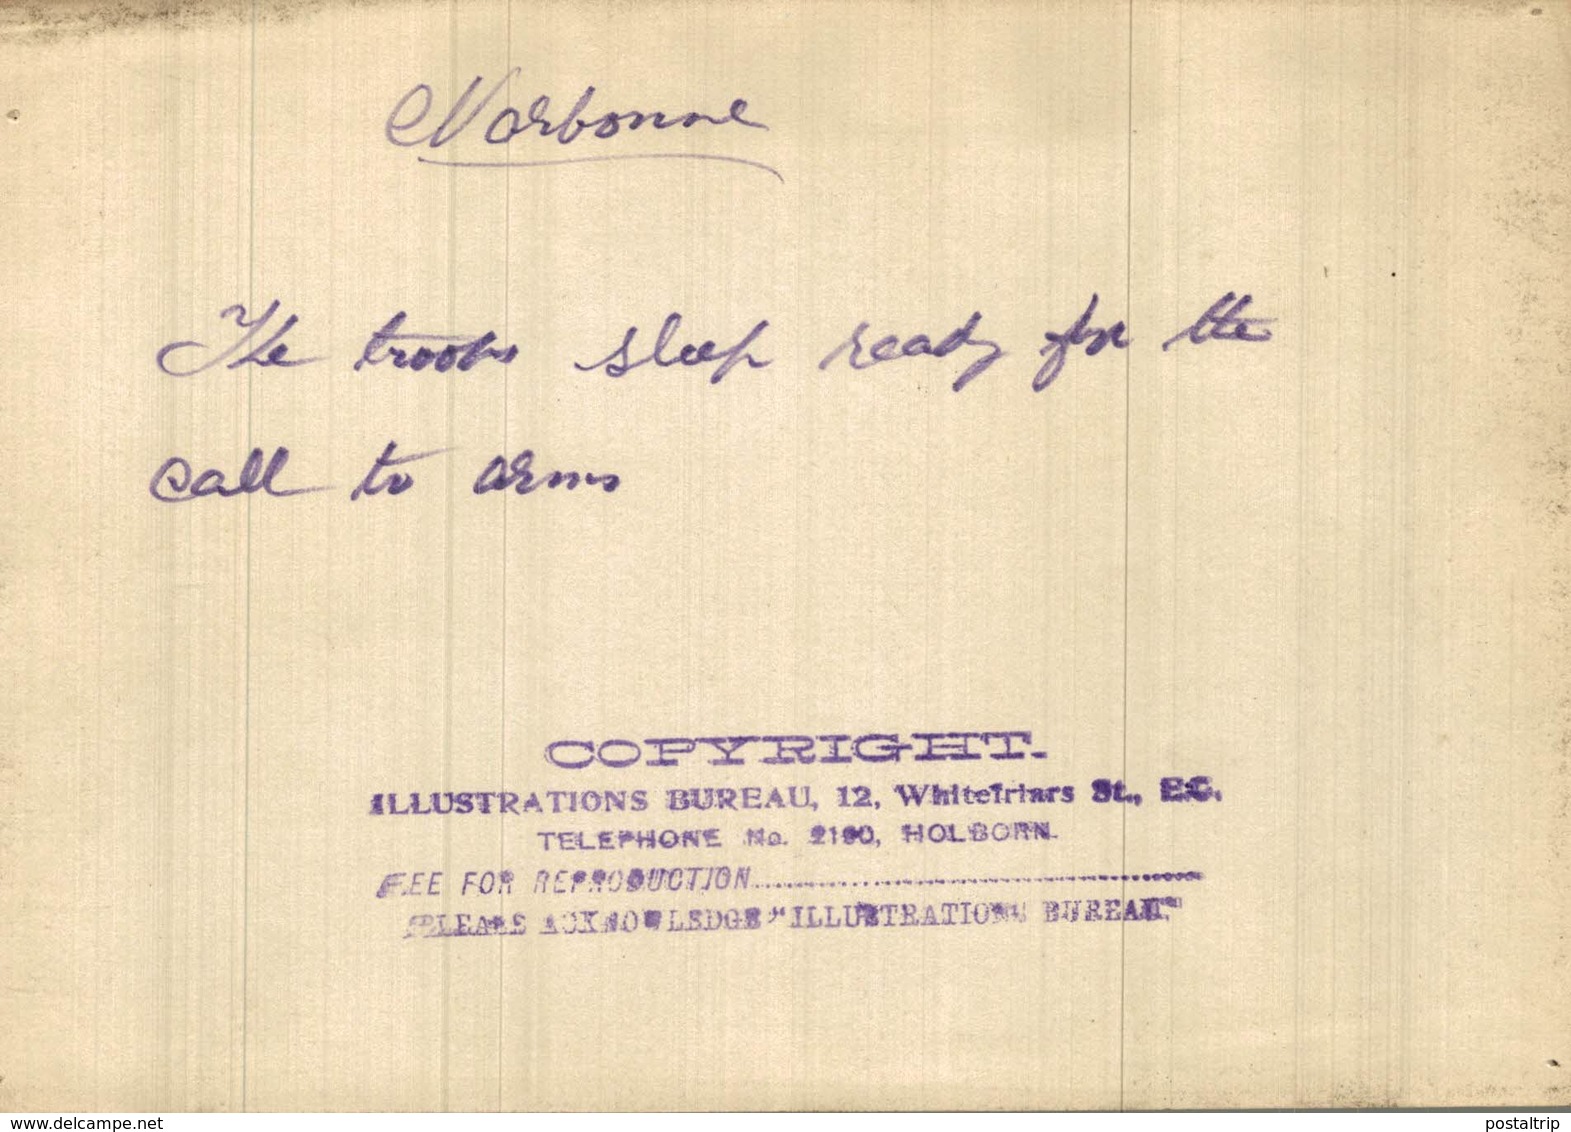 Narbonne
The troops sleep ready for the
call to arms
COPYRIGHT.
ILLUSTRATIONS BUREAU, 12, Whitefriars St., E.C.
TELEPHONE No. 2190, HOLBORN.
FEE FOR REPRODUCTION..........
PLEASE ACKNOWLEDGE "ILLUSTRATIONS BUREAU"
www.delcampe.net
postaltrip